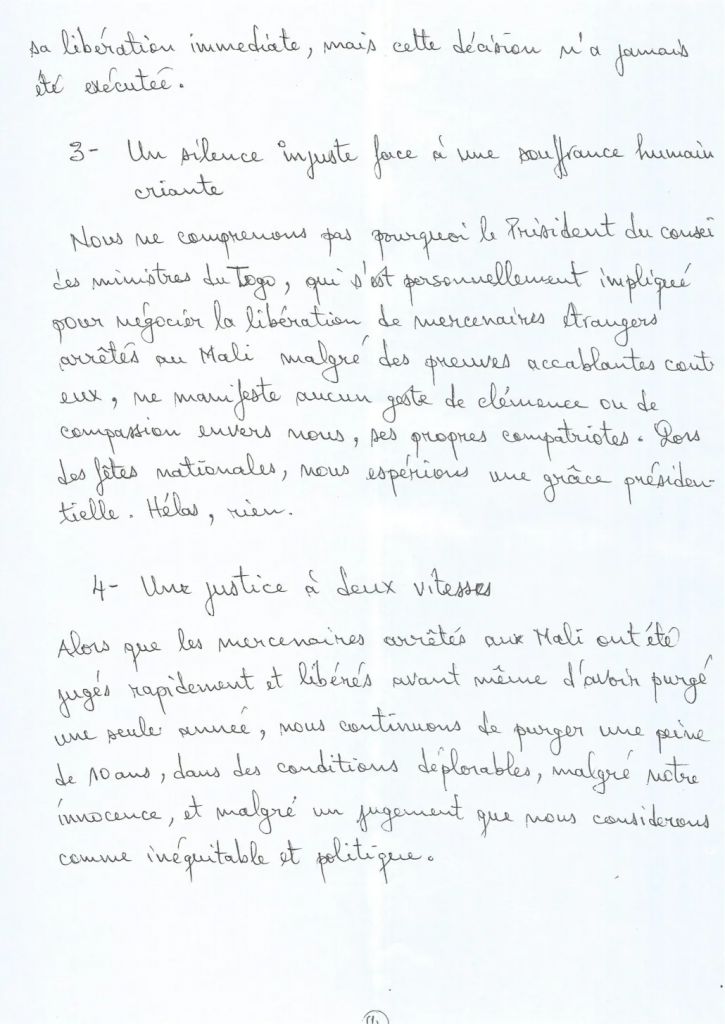 sa libération immediate, mais cette décision n'a jamais
été exécutée.
3- Un silence injuste face à une souffrance humain
criante
Nous ne comprenons pas pourquoi le Président du consei
des ministres du Togo, qui s'est personnellement impliqué
pour négocier la libération de mercenaires étrangers
arrêtés au Mali malgré des preuves accablantes cont
eux, ne manifeste aucun geste de clémence ou de
compassion envers nous, ses propres compatriotes. Lors
des fêtes nationales, nous espérions une grâce présiden-
tielle. Hélas, rien.
4- Une justice à deux vitesses
Alors que les mercenaires arrêtés aux Mali ont été
jugés rapidement et libérés avant même d'avoir purgé
une seule anneé, nous continuons de purger une peine
de 10 ans, dans des conditions déplorables, malgré notre
innocence, et malgré un jugement que nous considerons
comme inéquitable et politique.